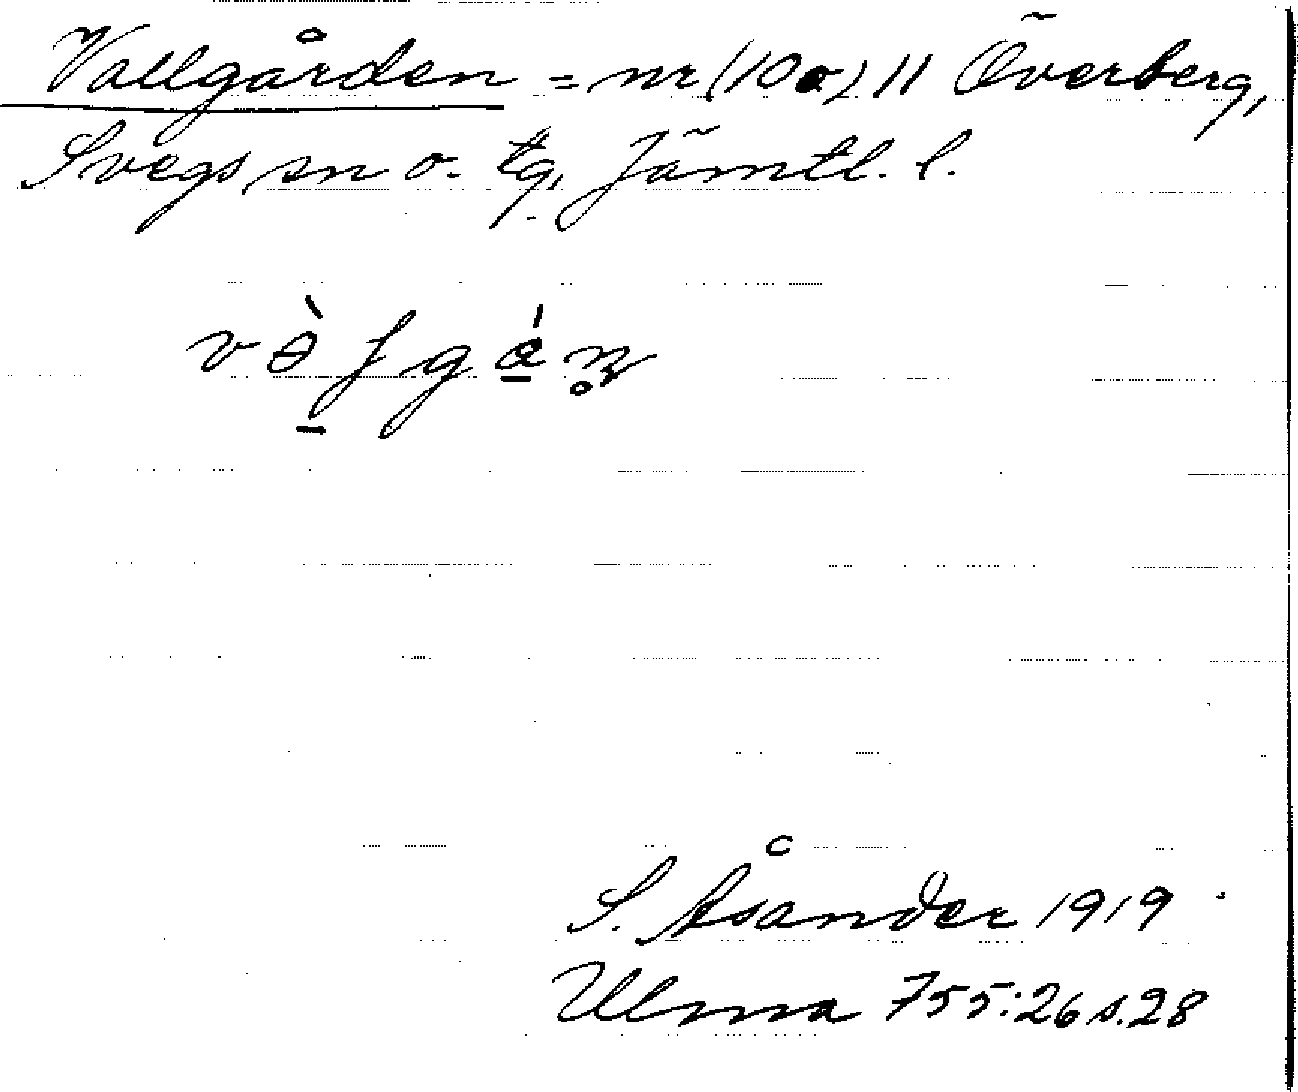 Vallgården = nr (10a) 11 Överberg,
Svegs sn o. tg, Jämtl. l.
S. Åsander 1919
Ulma 755:26 s. 28